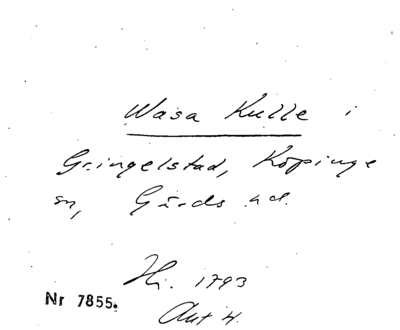 Wasa Kulle i
Gringelstad, Köpinge
sn, Gärds hd.
Hi. 1793
Aut H.
Nr 7855.